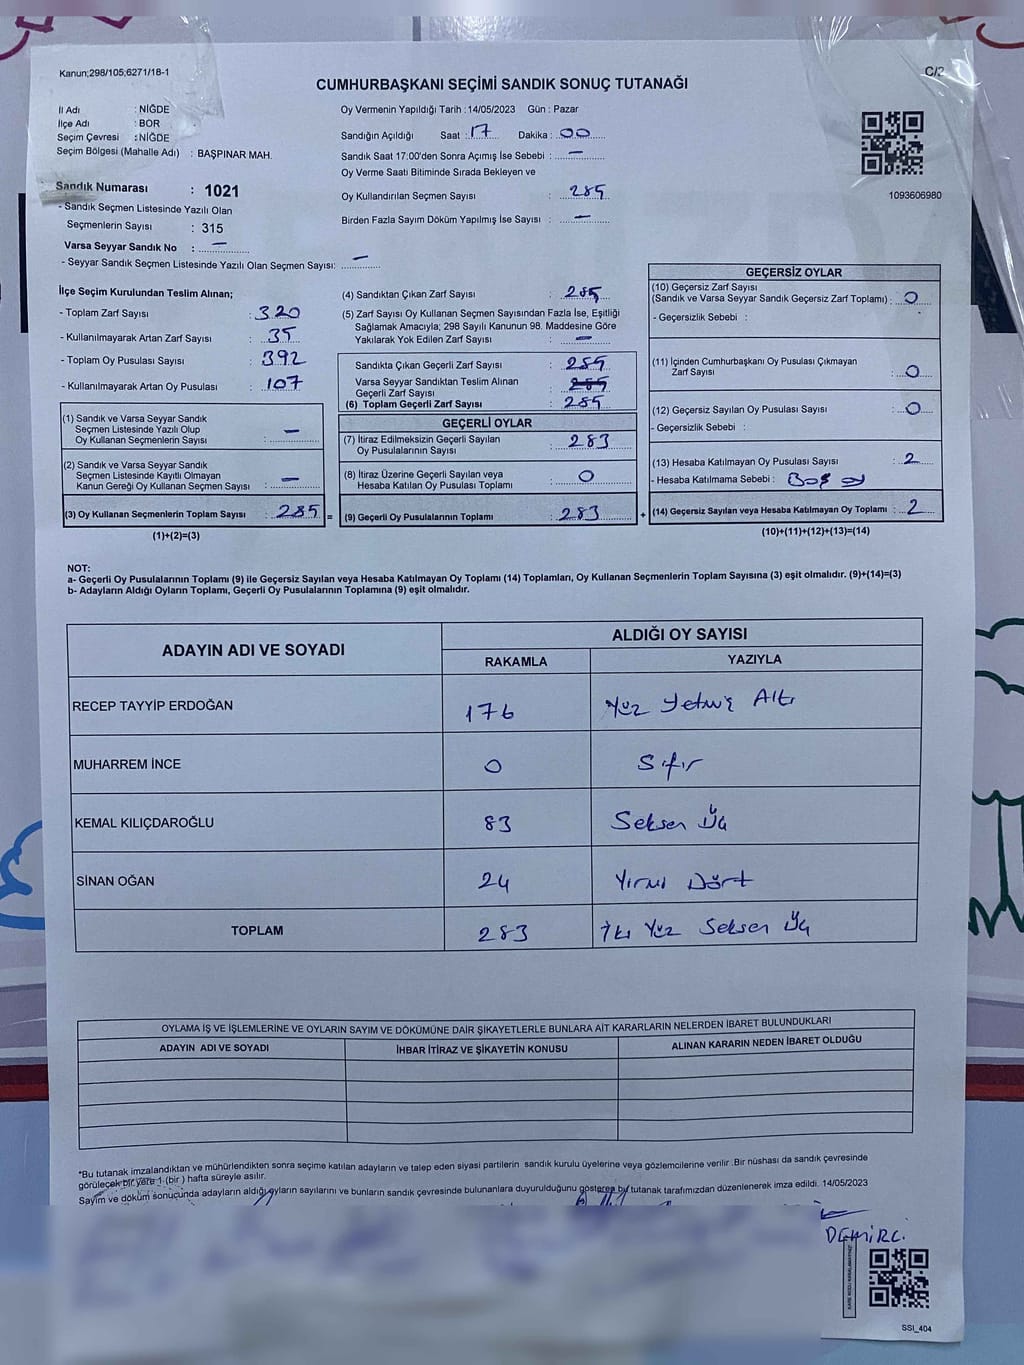 Kanun;298/105;6271/18-1
C/2
CUMHURBAŞKANI SEÇİMİ SANDIK SONUÇ TUTANAĞI
İl Adı : NİĞDE
İlçe Adı : BOR
Seçim Çevresi : NİĞDE
Seçim Bölgesi (Mahalle Adı) : BAŞPINAR MAH.
Oy Vermenin Yapıldığı Tarih :14/05/2023 Gün : Pazar
Sandığın Açıldığı Saat : 17 Dakika : 00
Sandık Saat 17:00'den Sonra Açımış İse Sebebi : —
Oy Verme Saati Bitiminde Sırada Bekleyen ve
Oy Kullandırılan Seçmen Sayısı : 285
Birden Fazla Sayım Döküm Yapılmış İse Sayısı : —
1093606980
Sandık Numarası : 1021
- Sandık Seçmen Listesinde Yazılı Olan
Seçmenlerin Sayısı : 315
Varsa Seyyar Sandık No : —
- Seyyar Sandık Seçmen Listesinde Yazılı Olan Seçmen Sayısı: —
İlçe Seçim Kurulundan Teslim Alınan;
- Toplam Zarf Sayısı : 320
- Kullanılmayarak Artan Zarf Sayısı : 35
- Toplam Oy Pusulası Sayısı : 392
- Kullanılmayarak Artan Oy Pusulası : 107
(1) Sandık ve Varsa Seyyar Sandık
Seçmen Listesinde Yazılı Olup
Oy Kullanan Seçmenlerin Sayısı : —
(2) Sandık ve Varsa Seyyar Sandık
Seçmen Listesinde Kayıtlı Olmayan
Kanun Gereği Oy Kullanan Seçmen Sayısı : —
(3) Oy Kullanan Seçmenlerin Toplam Sayısı : 285 =
(1)+(2)=(3)
(4) Sandıktan Çıkan Zarf Sayısı : 285
(5) Zarf Sayısı Oy Kullanan Seçmen Sayısından Fazla İse, Eşitliği
Sağlamak Amacıyla; 298 Sayılı Kanunun 98. Maddesine Göre
Yakılarak Yok Edilen Zarf Sayısı : —
Sandıkta Çıkan Geçerli Zarf Sayısı : 285
Varsa Seyyar Sandıktan Teslim Alınan
Geçerli Zarf Sayısı : 285
(6) Toplam Geçerli Zarf Sayısı : 285
GEÇERLİ OYLAR
(7) İtiraz Edilmeksizin Geçerli Sayılan
Oy Pusulalarının Sayısı : 283
(8) İtiraz Üzerine Geçerli Sayılan veya
Hesaba Katılan Oy Pusulası Toplamı : 0
(9) Geçerli Oy Pusulalarının Toplamı : 283 +
GEÇERSİZ OYLAR
(10) Geçersiz Zarf Sayısı
(Sandık ve Varsa Seyyar Sandık Geçersiz Zarf Toplamı) : 0
- Geçersizlik Sebebi :
(11) İçinden Cumhurbaşkanı Oy Pusulası Çıkmayan
Zarf Sayısı : 0
(12) Geçersiz Sayılan Oy Pusulası Sayısı : 0
- Geçersizlik Sebebi :
(13) Hesaba Katılmayan Oy Pusulası Sayısı : 2
- Hesaba Katılmama Sebebi : Boş oy
(14) Geçersiz Sayılan veya Hesaba Katılmayan Oy Toplamı : 2
(10)+(11)+(12)+(13)=(14)
NOT:
a- Geçerli Oy Pusulalarının Toplamı (9) ile Geçersiz Sayılan veya Hesaba Katılmayan Oy Toplamı (14) Toplamları, Oy Kullanan Seçmenlerin Toplam Sayısına (3) eşit olmalıdır. (9)+(14)=(3)
b- Adayların Aldığı Oyların Toplamı, Geçerli Oy Pusulalarının Toplamına (9) eşit olmalıdır.
ADAYIN ADI VE SOYADI
ALDIĞI OY SAYISI
RAKAMLA YAZIYLA
RECEP TAYYİP ERDOĞAN 176 Yüz Yetmiş Altı
MUHARREM İNCE 0 Sıfır
KEMAL KILIÇDAROĞLU 83 Seksen Üç
SİNAN OĞAN 24 Yirmi Dört
TOPLAM 283 İki Yüz Seksen Üç
OYLAMA İŞ VE İŞLEMLERİNE VE OYLARIN SAYIM VE DÖKÜMÜNE DAİR ŞİKAYETLERLE BUNLARA AİT KARARLARIN NELERDEN İBARET BULUNDUKLARI
ADAYIN ADI VE SOYADI İHBAR İTİRAZ VE ŞİKAYETİN KONUSU ALINAN KARARIN NEDEN İBARET OLDUĞU
*Bu tutanak imzalandıktan ve mühürlendikten sonra seçime katılan adayların ve talep eden siyasi partilerin sandık kurulu üyelerine veya gözlemcilerine verilir .Bir nüshası da sandık çevresinde
görülecek bir yere 1 (bir ) hafta süreyle asılır.
Sayım ve döküm sonucunda adayların aldığı oyların sayılarını ve bunların sandık çevresinde bulunanlara duyurulduğunu gösteren bu tutanak tarafımızdan düzenlenerek imza edildi. 14/05/2023
DEMİRCİ
SSI_404